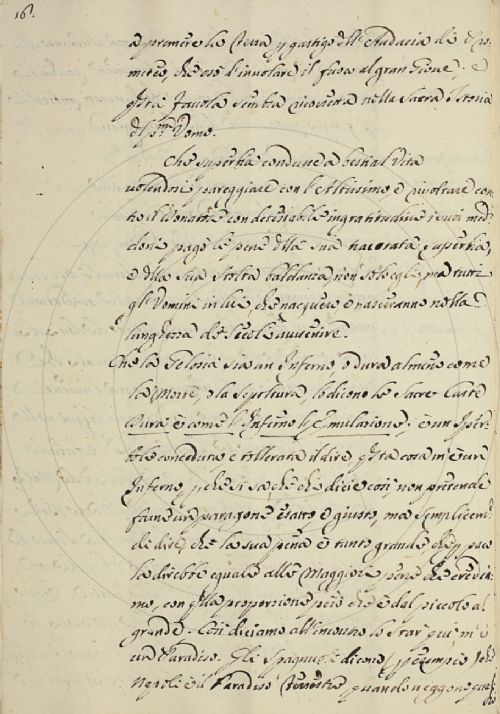 161.
a premere la Terra p gastigo dll' Audacia de Pro-
meteo, che osò d'involare il fuoco al gran Giove; e
qsta favola sembra ricoverta nella Sacra Istoria
del pmo Uomo.
Che superbia conduce a bestial Vita
volendosi pareggiare con l'Altissimo, e rivoltare con-
tro il Donatore con detestabile ingratitudine i suoi med
doni pagò le pene dlla sua Superbia,
e dlla sua stolta baldanza, non solo egli, ma tutti
gl' Uomini in lui, che nacquero e nasceranno nella
lunghezza de' secoli avvenire.
Che la Gelosia sia un Inferno, o dura almeno come
la Morte, o la sepoltura, lo dicono le Sacre Carte
Dura è come l'Inferno l'Emulazione; e un Iper-
bole conceduta e tollerata il dire qsta cosa m'è un
Inferno, pche si sa, che chi dice così, non pretende
farne un paragone esatto e giusto, ma semplicemte
di dire, che la sua pena è tanto grande che p poco
la direbbe eguale alle Maggiori pene che crediã-
mo, con qlla proporzione però che è dal piccolo al
grande. Così diciamo all'incontro lo star qui, m'è
un Paradiso. Gli Spagnuoli dicono p esempio che
Napoli è il Paradiso Terrestre quando veggono